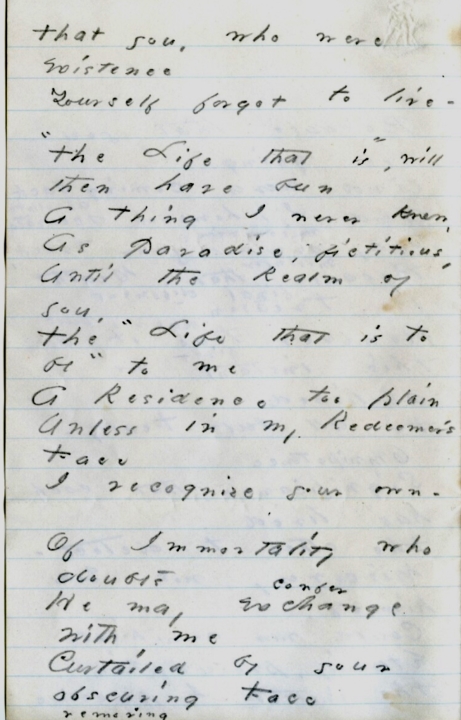 that you, who were
Existence
Yourself forgot to live -
"the Life that is", will
then have been
A thing I never knew,
As Paradise, fictitious,
Until the Realm of
you,
the "Life that is to
be" to me
A Residence too plain
Unless in my Redeemer's
Face
I recognize your own -
Of Immortality who
doubts
confer
He may Exchange
with me
Curtailed by your
obscuring Face
removing